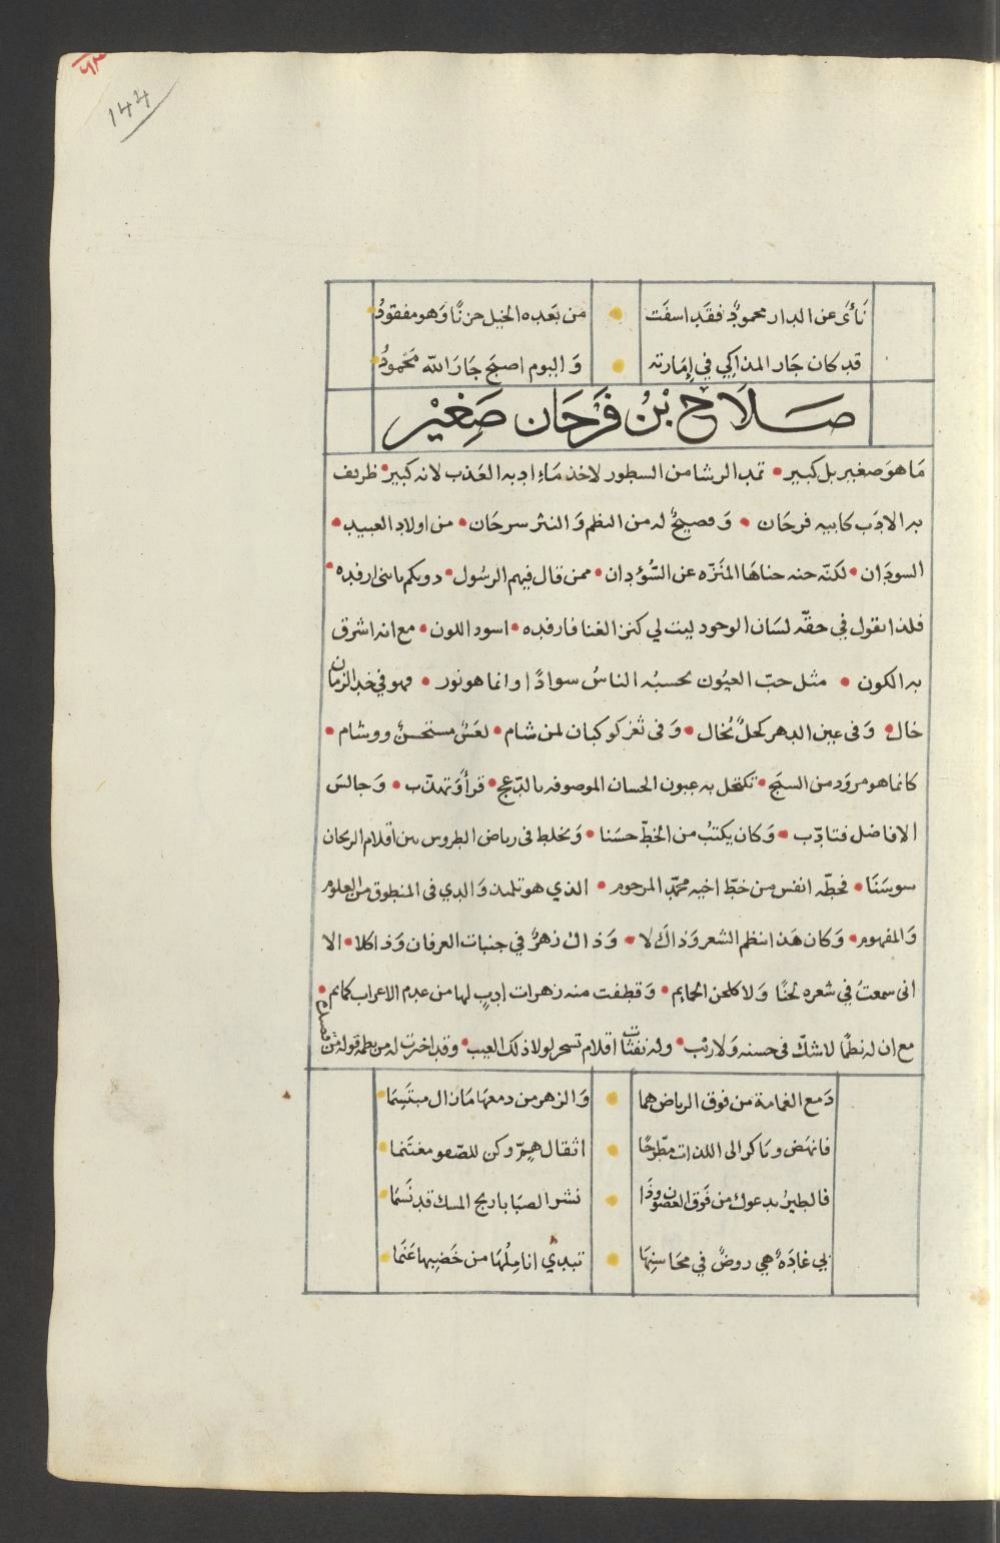 ١٤٤
نَأىَ عن الدار محمودٌ فقَد اسفَت من بَعده الخيل حزنًا وَهو مفقودُ
قد كان جَار المذاكي في إِمَارته وَ اليوم اصبَح جَارَ الله مَحمُودُ
صَلَاح بْنُ فَرحَان صَغِيْر
مَا هوَ صغير بل كبير • تمد الرشا من السطور لاخذ مَاء ادبه العَذب لانه كبير • ظريف
به الادَب كابيه فرحَان • وَ فصيحٌ له من النظم وَ النثر سرحَان • من اولاد العبيد •
السودَان • لكنّه المنَزّه عن السُّؤدان • ممن قال فيهم الرسُول • دونكم يابنى ارفده •
فلذا نقول في حقّه لسَان الوجود ليت لي كنز الغنا فارفده • اسود اللون • مع انه اشرق
به الكون • مثل حبّ العيُون يحسبُه الناسُ سوادًا وانما هو نور • فهو في خد الزمان
خال • وَ فى عين الدهر كحلٌ يُخال • وَ فى ثغر كوكبان لمن شام • لعَسٌ مستحسنٌ ووشام •
كانما هو مروَد من السبَج • تكتحل به عيون الحسان الموصوفه بالدّعج • قرأ وَ تهذّب • وَ جالسَ
الافاضل فتادّب • وَ كان يكتبُ من الخطّ حسَنا • وَ يخلط فى رياض الطروس من اقلام الريحان
سوسَنَا • فخطّه انفس من خطّ اخيه محمّد المرحوم • الذي هو تلميذ وَ الدي فى المنطوق من العلوم
وَ المفهوم • وَ كان هَذا ينظم الشعر وَ ذاكَ لا • وَ ذاك زهرٌ في جنبات العرفان وَ ذا كلا • الا
انى سمعتُ في شعره لحنًا وَ لا كلحن الحمايم • وَ قطفت منه زهرات ادبٍ لها من عدم الاعراب كمايم •
مع ان له نظمًا لاشكّ فى حسنه وَ لا ريَب • وله نفثات اقلام تسحر لولا ذلك العيب • وقد اخترت له من نظمه قوله من قصيدة
دَمع الغمامة من فوق الرياض هما وَ الزهر من دمعهَا مَا زال مبتَسِمَا
فانهَض وبَاكر الى اللذات مطّرحًا اثقال هِمّ وكن للصّفو مغتَنما
فالطيرُ يدعوك من فَوق الغصون وذَا نشر الصبَا باريج المسك قد نَسمَا
بي غادَةٌ هي روضٌ في محَاسِنهَا تبدِي انامِلُهَا من خَضبِها عَنَما